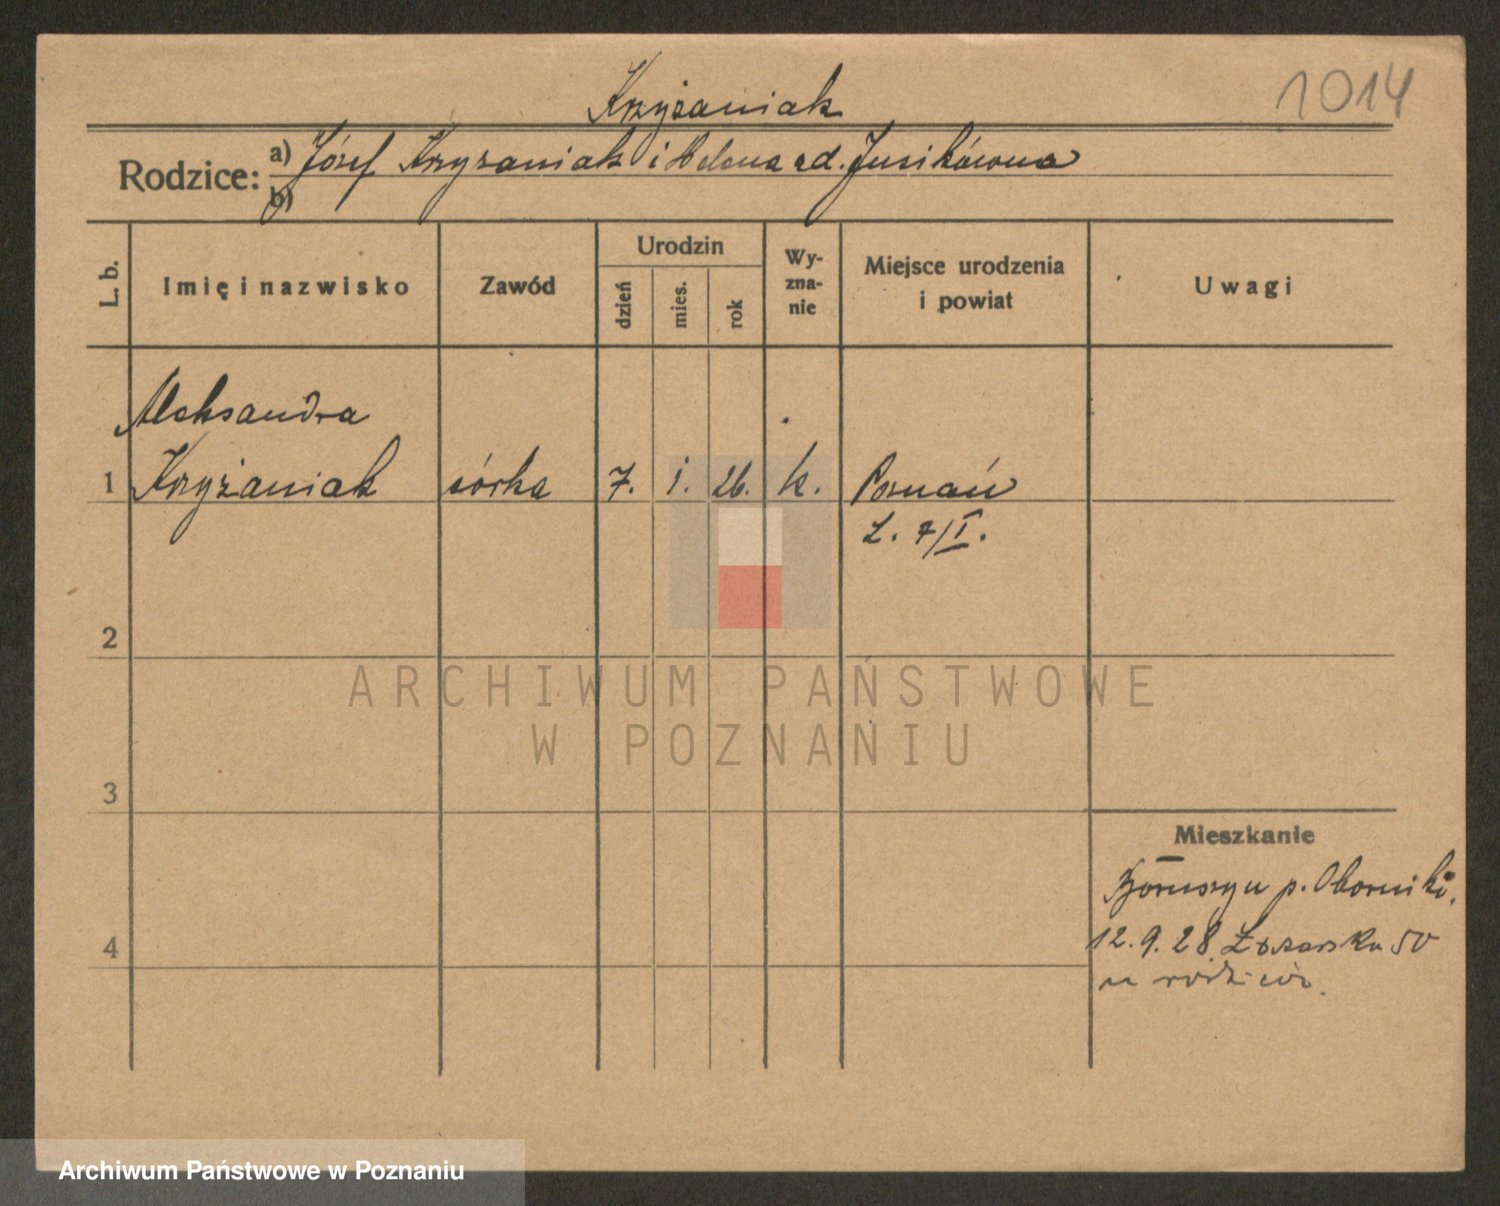 1014
Krzyżaniak
Rodzice: a) Józef Krzyżaniak i Helena zd. Jusikówna
b)
L. b. Imię i nazwisko Zawód Urodzin dzień mies. rok Wy-zna-nie Miejsce urodzenia i powiat Uwagi
Aleksandra
1 Krzyżaniak córka 7. 1. 26. k. Poznań
L. 7/I.
2
ARCHIWUM PAŃSTWOWE
W POZNANIU
3
Mieszkanie
Boruszyn p. Oborniki.
4 12. 9. 28 50
u rodziców.
Archiwum Państwowe w Poznaniu